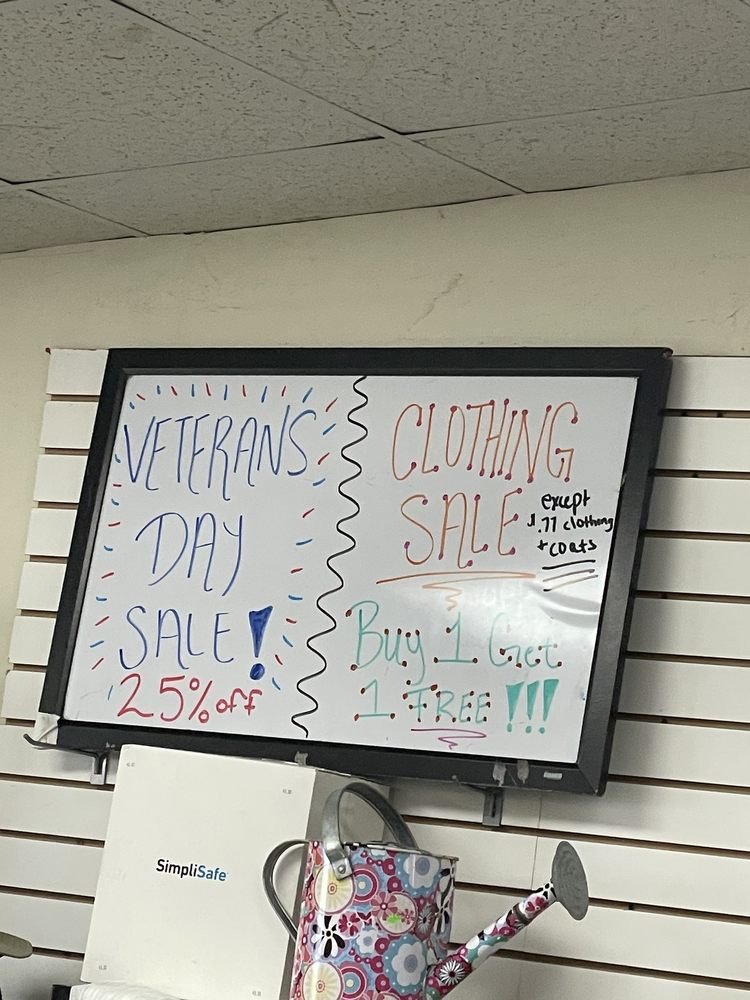 VETERANS
DAY
SALE!
25% off
CLOTHING
SALE
except
1.77 clothing
+ coats
Buy 1 Get
1 FREE!!!
SimpliSafe